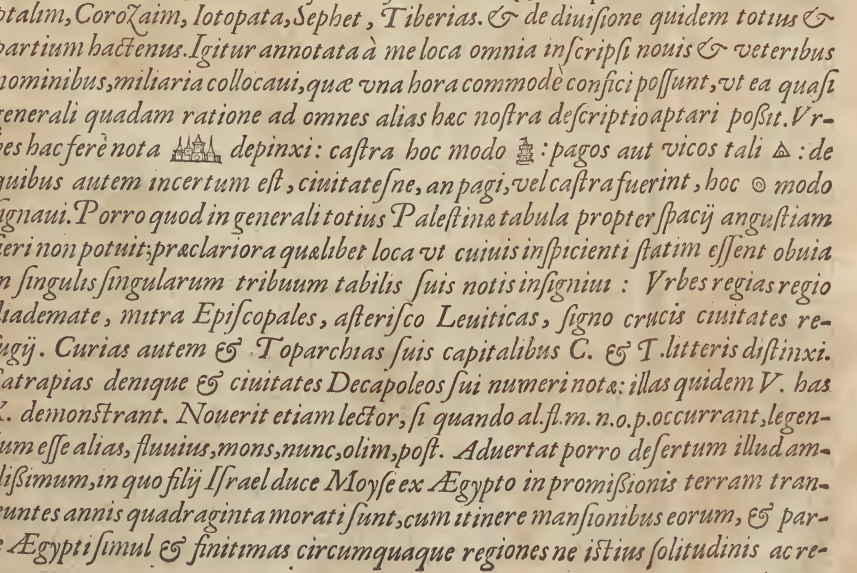 ptalim, Corozaim, Iotopata, Sephet, Tiberias. & de diuisione quidem totius &
partium hactenus. Igitur annotata à me loca omnia inscripsi nouis & veteribus
nominibus, miliaria collocaui, quæ vna hora commodè confici possunt, vt ea quasi
generali quadam ratione ad omnes alias hæc nostra descriptio aptari possit. Vr-
bes hac ferè nota depinxi: castra hoc modo : pagos aut vicos tali : de
quibus autem incertum est, ciuitatesne, an pagi, vel castra fuerint, hoc modo
ignaui. Porro quod in generali totius Palestinæ tabula propter spacij angustiam
ieri non potuit; præclariora quælibet loca vt cuiuis inspicienti statim essent obuia
n singulis singularum tribuum tabilis suis notis insigniui : Vrbes regias regio
diademate, mitra Episcopales, asterisco Leuiticas, signo crucis ciuitates re-
fugij. Curias autem & Toparchias suis capitalibus C. & T. litteris distinxi.
atrapias denique & ciuitates Decapoleos sui numeri notæ: illas quidem V. has
X. demonstrant. Nouerit etiam lector, si quando al. fl. m. n. o. p. occurrant, legen-
um esse alias, fluuius, mons, nunc, olim, post. Aduertat porro desertum illud am-
plißimum, in quo filij Israel duce Moyse ex Ægypto in promißionis terram tran-
euntes annis quadraginta morati sunt, cum itinere mansionibus eorum, & par-
e Ægypti simul & finitimas circumquaque regiones ne istius solitudinis ac re-